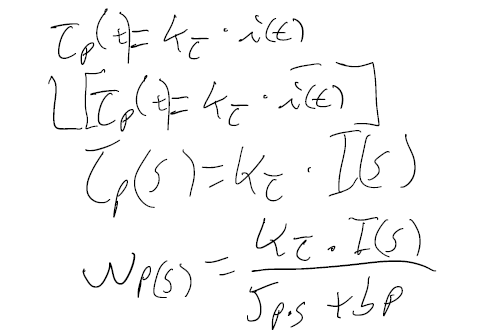 τ_p(t) = k_τ · i(t)
L[τ_p(t) = k_τ · i(t)]
τ_p(s) = k_τ · I(s)
w_p(s) = (k_τ · I(s)) / (J_p·s + b_p)